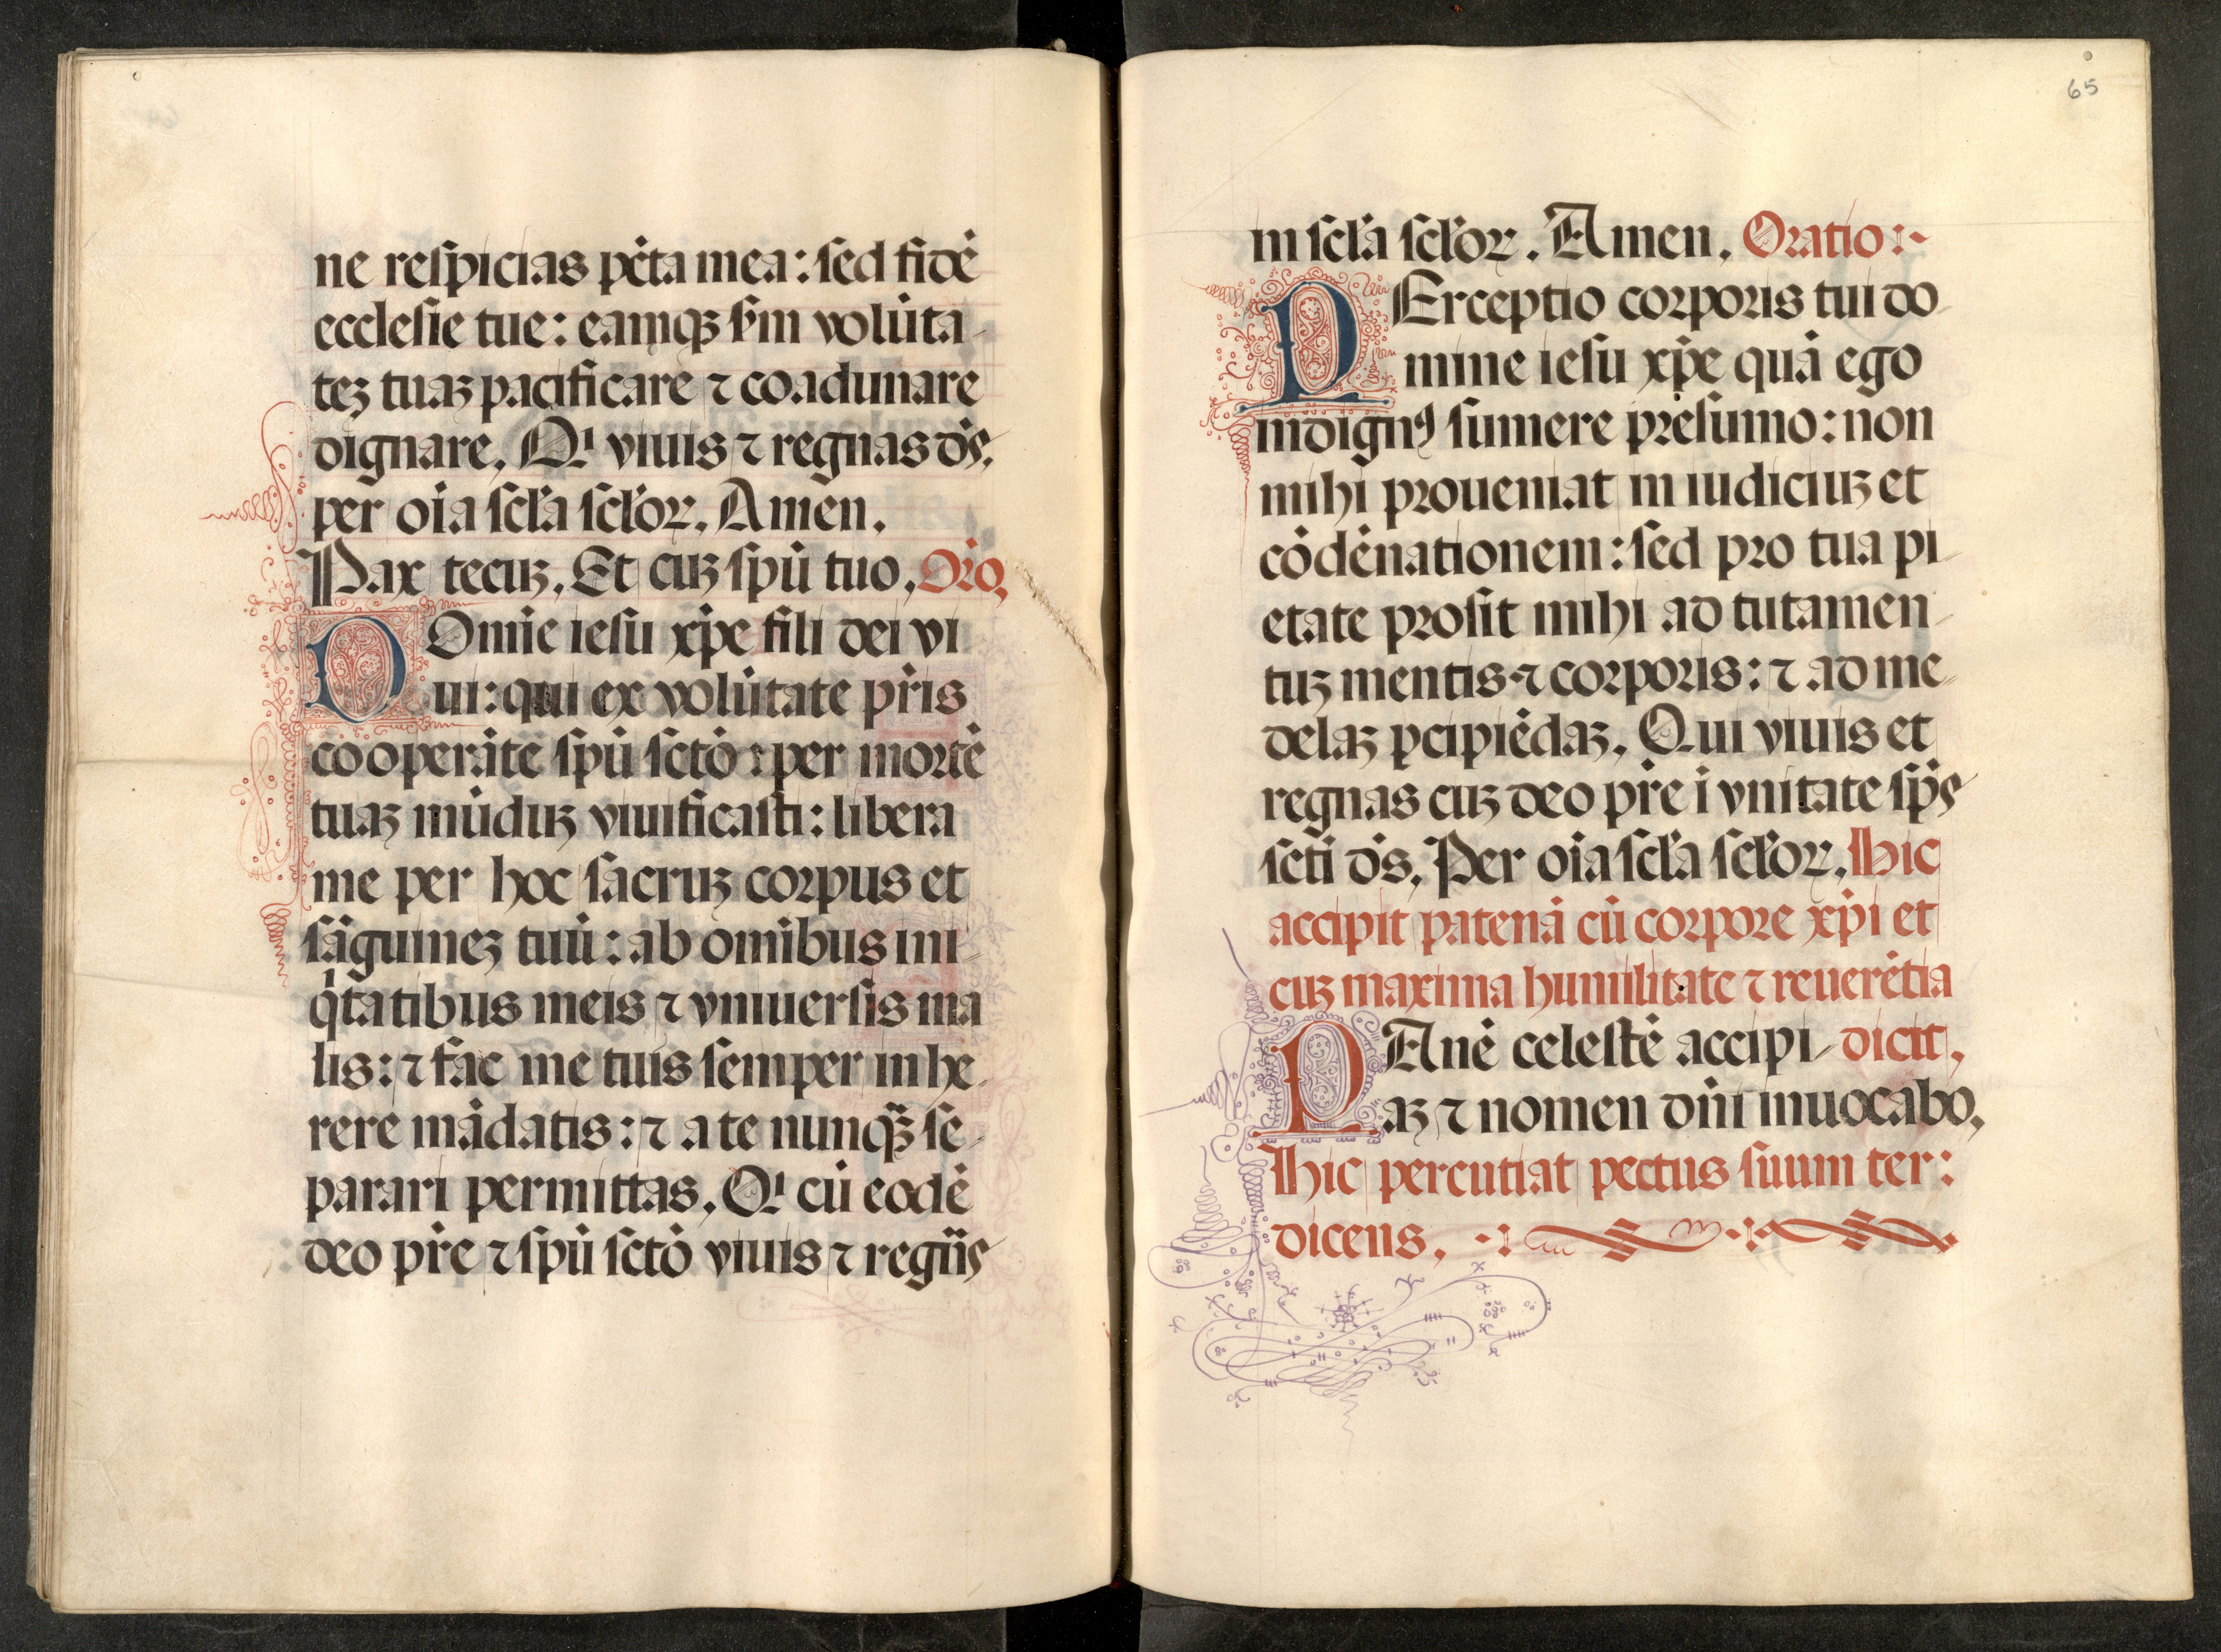 ne respicias pctā mea: sed fidē
ecclesie tue: eamqꝫ scḋm volūta
teꝫ tuaꝫ pacificare ⁊ coadunare
dignare. Qi viuis ⁊ regnas ds.
per oīa scła scłoꝝ. Amen.
Pax tecuꝫ. Et cuꝫ spū tuo. Oro.
DOmīe iesu xp̄e fili dei vi
ui: qui ex volūtate pr̄is
cooperāte spū sctō : per mortē
tuaꝫ mūduꝫ viuificasti: libera
me per hoc sacruꝫ corpus et
sāguineꝫ tuū: ab omībus ini
qͥtatibus meis ⁊ vniuersis ma
lis: ⁊ fac me tuis semper inhe
rere mādatis: ⁊ a te nunqꝫ̄ se
parari permittas. Qi cū eodē
deo pr̄e ⁊ spū sctō viuis ⁊ regn̄s
65
in scła scłoꝝ. Amen. Oratio:~
PErceptio corporis tui do
mine iesu xp̄e quā ego
indignꝰ sumere presumo: non
mihi proueniat in iudiciuꝫ et
cōdēnationem: sed pro tua pi
etate prosit mihi ad tutamen
tuꝫ mentis ⁊ corporis: ⁊ ad me
delaꝫ ꝑcipiēdaꝫ. Qui viuis et
regnas cuꝫ deo pr̄e ī vnitate sp̄s
sctī ds. Per oīa scła scłoꝝ. Hic
accipit patenā cū corpore xp̄i et
cuꝫ maxima humilitate ⁊ reuerētia
PAnē celestē accipi dicit.
aꝫ ⁊ nomen dn̄i inuocabo.
Hic percutiat pectus suum ter:
dicens.